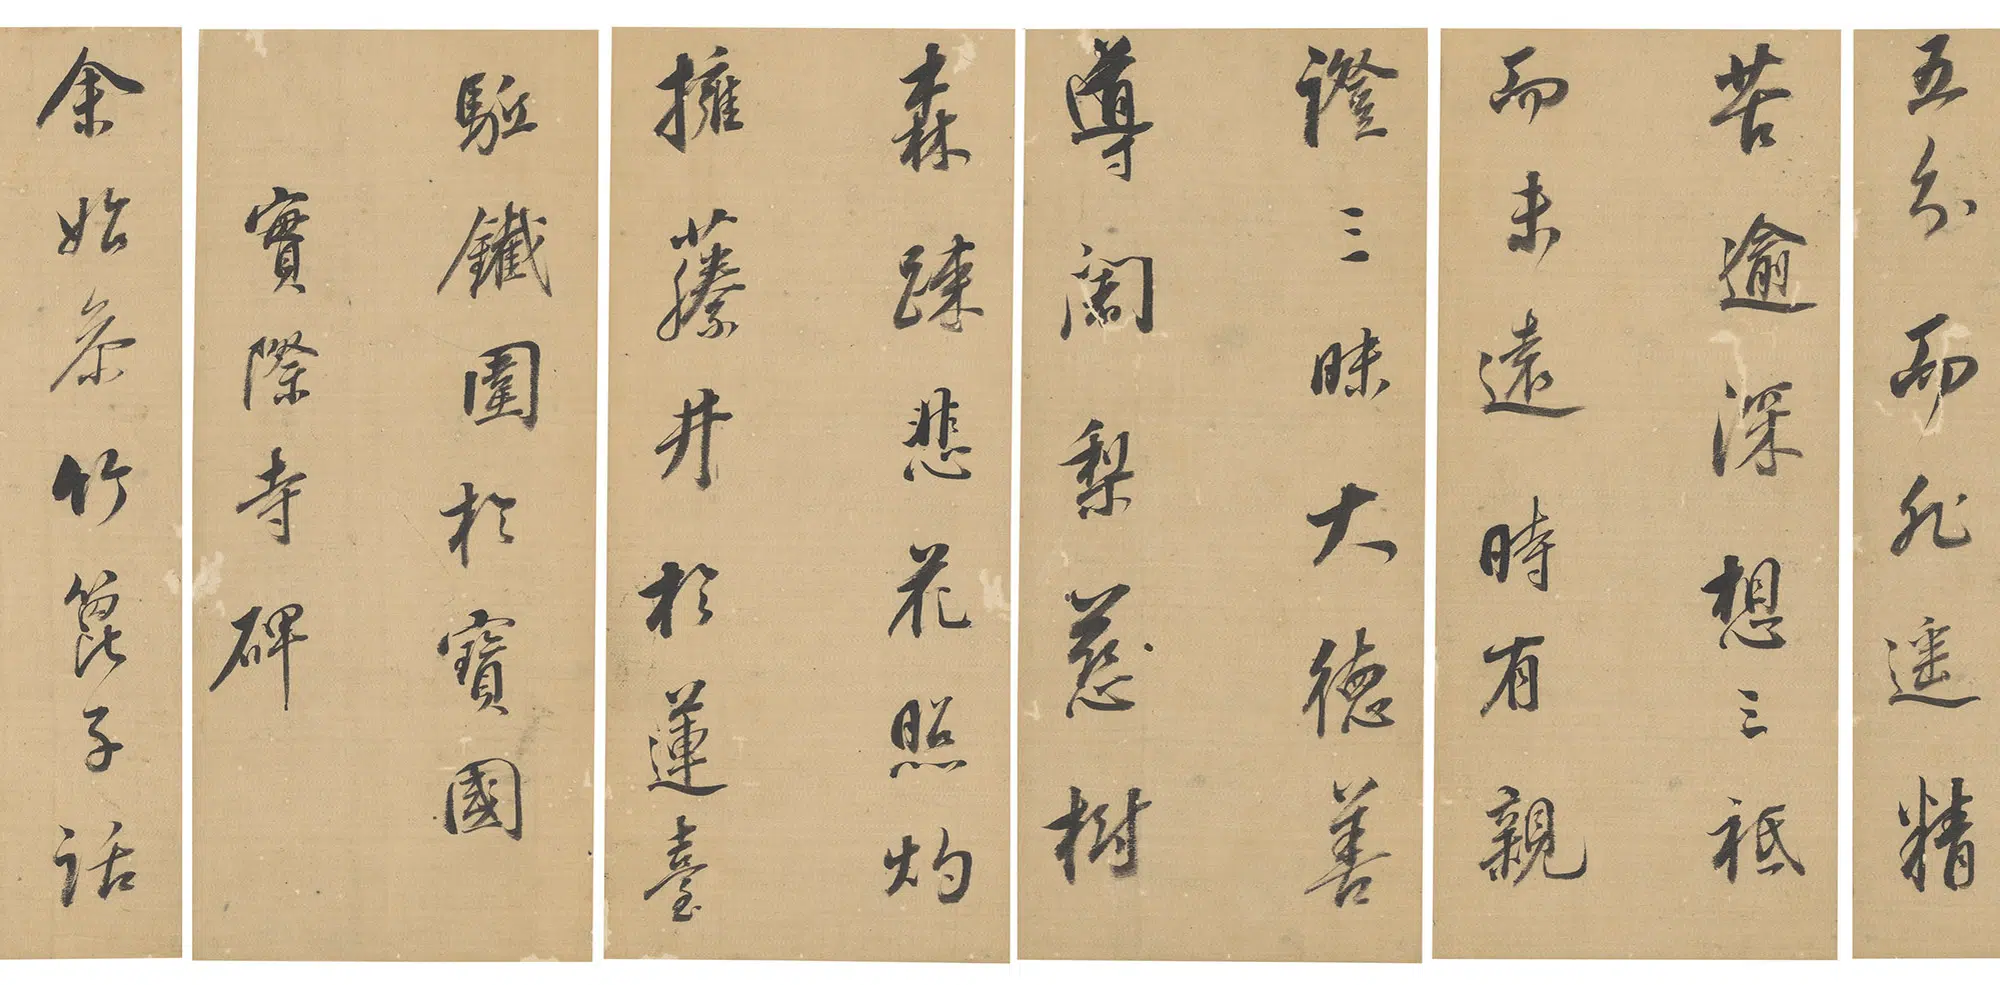 五分而非遥精
苦逾深想三祇
而未遠時有親
證三昧大德善
導闍梨慈樹
森疎悲花照灼
擁藤井於蓮臺
駈鐵圍於寶國
實際寺碑
余始參竹篦子話